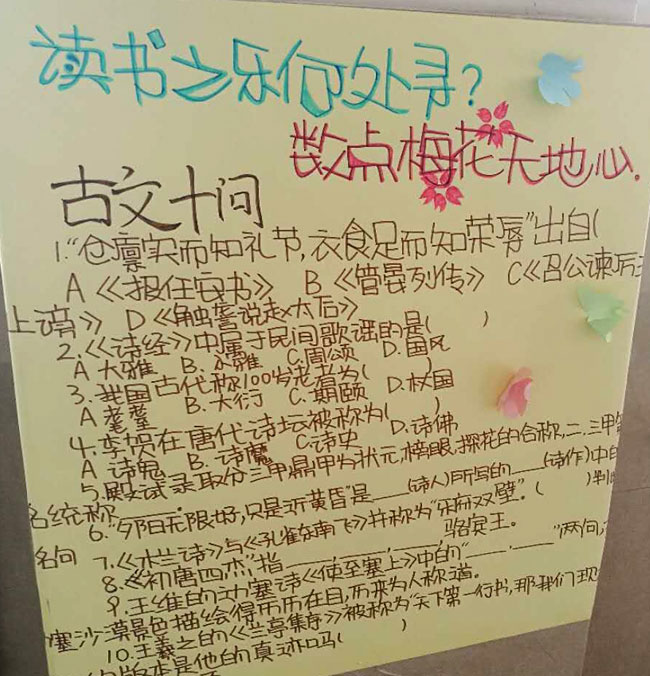 读书之乐何处寻？
数点梅花天地心.
古文十问
1.“仓廪实而知礼节,衣食足而知荣辱”出自(
A《报任安书》 B《管晏列传》 C《召公谏厉王
上谤》 D《触詟说赵太后》
2.《诗经》中属于民间歌谣的是( )
A 大雅 B. 小雅 C.周颂 D.国风
3.我国古代称100岁老者为( )
A 耄耋 B.大衍 C.期颐 D.杖国
4.李贺在唐代诗坛被称为( )
A 诗鬼 B.诗魔 C诗史 D.诗佛
5.殿试录取分三甲,鼎甲为状元,榜眼,探花的合称,二.三甲第
名统称____.
6.“夕阳无限好,只是近黄昏”是___(诗人)所写的___(诗作)中的
名句
7.《木兰诗》与《孔雀东南飞》并称为“乐府双壁”。( )判
8.《初唐四杰”指____,____,____,骆宾王。
9.王维的边塞诗《使至塞上》中的“____,____”两句,
塞沙漠景色描绘得历历在目,历来为人称道。
10.王羲之的《兰亭集序》被称为“天下第一行书,那我们现
版本是他的真迹吗( )